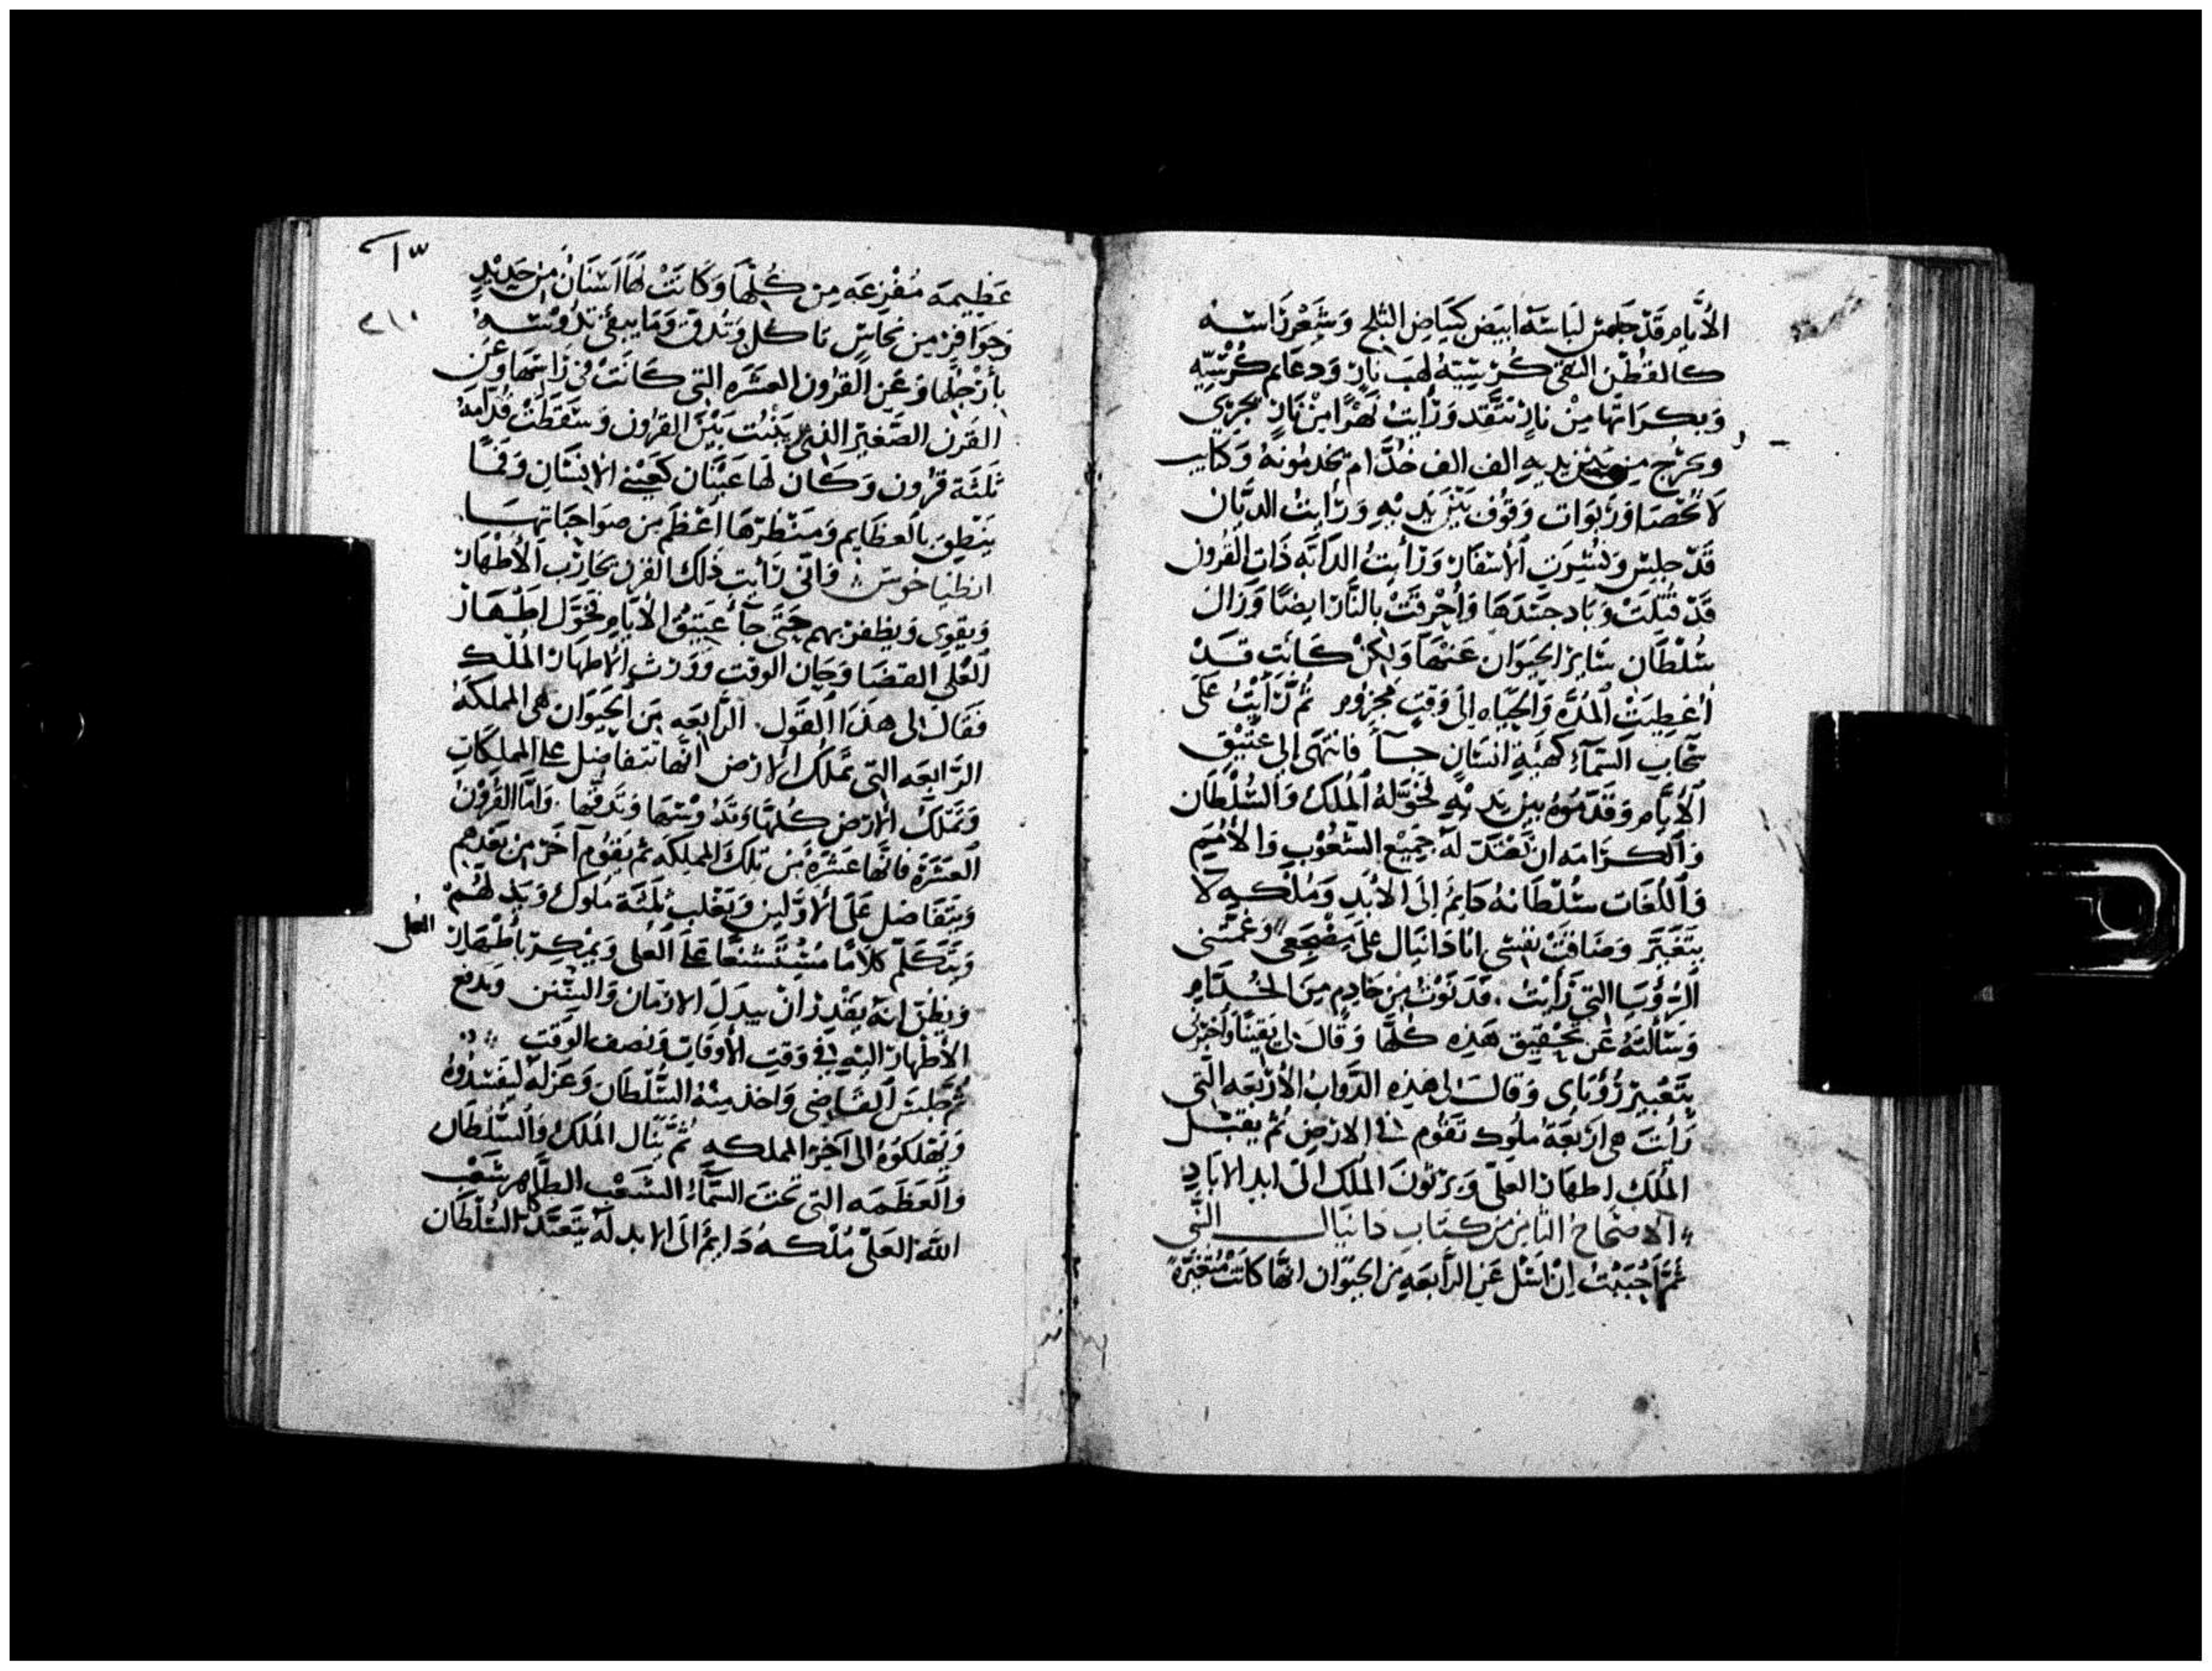 الأيَّام قَدْ جَلَس لبَاسَهُ ابيَض كبيَاض الثلج وَشَعْر رَاسه
كالقطْن النقي كُرْسِيّهُ لهَب نارٍ وَدعَايم كُرْسيّه
وَبكرَاتها مِنْ نارٍ تتَّقِد وَرَأيت نَهْرًا مِنْ نَارٍ يجري
ويخرُج مِن بين يديهِ الف الف خُدَّام يخدمُونهُ وَكتايب
لا تُحْصَا وَرَبوَات وقوُف بَيْن يَديْهِ وَرَأيْتُ الديَّان
قَدْ جلِسَ وَنُشِرَت الأسْفَار وَرَأيتُ الدَابَّه ذَات القرُون
قَدْ قُتلَتْ وَبَاد جَسَدهَا وَأُحْرِقَتْ بالنَّار ايضًا وَزَال
سُلْطَان سَايِر الحَيوَان عَنهَا وَلكِنْ كَانَت قَدْ
أُعْطِيَتْ المُدَّه وَالحيَاه إلى وَقتٍ مجزوُم ثُمَّ رَأيْتُ عَلَى
سَحَاب السَّمآء كهَيئةِ انسَانٍ جآ فانتهَى إلى عتيْق
الأيَّام وَقدّمُوهُ بين يَديْهِ فخوَّلهُ المُلك وَالسُّلْطَان
وَالكرَامَه ان تَعْتدّ لهُ جَميْع الشعُوْب وَالأُمَم
وَاللغَات سُلْطَانهُ دَايمُ إلى الأبَد وَمُلْكهِ لا
يتَغيَّر وَضَاقَتْ نفسي انا دَانيَال عَلَى مضْجَعي وَغمَّتني
الرُّؤْيَا التي رَأيْتُ فدَنَوْتُ مِن خَادِم مِن الخُدَّام
وَسَألتهُ عَن تحْقيق هَذِه كلّها وَقَالَ لي يَقينًا وَاخبَرني
بتَعْبير رُؤيَاي وَقالَ لي هَذِه الدَّوابُ الأرْبَعَه التي
رَأيْتَ هي ارْبعَةُ ملُوك تَقُوم في الارْض ثُمَّ يقبَل
المُلك اطهَار العَليّ وَيرثوُنَ المُلك الى ابد الابَاد
الاصْحَاح الثامِن من كتَاب دَانيَال النَّبي
ثمَّ احْبَبْتُ انْ اسَل عَن الرَّابعَهِ مِن الحيَوَان انّهَا كَانَتْ مُتغَيّرَة
عَظِيمَه مُفْزعَه مِن كُلّهَا وَكَانَتْ لهَا اسْنَانْ مِن حَديْدٍ
وَحَوَافِر مِن نحَاسٍ تَاكُل وَتُدقّ وَمَا يبقَى تدُوْسُهُ
بأرْجُلها وَعَن القرُون العشَرَه التي كَانَت في رَاسهَا وَعَن
القَرْن الصَّغير الذي يَنبُت بَيْنَ القرُون وَسَقَطَتْ قُدَّامهُ
ثَلثَة قرُون وَكَان لهَا عَيْنَان كعَيْني الانسَان وَفمًا
يَنْطِق بالعظَايم وَمَنْظرَهَا اعْظَم مِن صوَاحبَاتهَا
انطنياخوس وَانّي رَأيت ذَلك القرْن يحَارِب الأطْهَار
وَيقوَى وَيظفَر بهم حَتَّى جآ عَتِيقُ الأيَّام فخَوَّل اطْهَار
العَليّ القضَا وَحَان الوقت وَوَرَث الاطهَار المُلك
فَقَالَ لي هَذَا القَول الرَّابعَه مِنَ الحيَوَان هي المملكَهُ
الرَّابعَه التي تَمْلك الارْض انَّها تتفَاضل عَلَى المملكَات
وَتَملكُ الارْض كُلّهَا وَتدُوْسُهَا وَتَدقّها وَامَّا القُرُوْن
العَشَرَة فانَّهَا عَشَرَةُ مِنْ تِلكَ المملكَه ثم يَقوُم آخَر مِن بَعْدهم
وَيتفَاضل عَلَى الأوَّلين وَيَغْلب ثَلثَة ملوك وَيذلهُمْ
وَيتَكَلَّم كلامًا مُسْتَشنعًا عَلَى العَلى وَيمْكر بأطْهَار العلى
وَيظنّ انهُ يقْدِرُ انْ يبدل الازمَان وَالسّنن وَيدفع
الأطْهَار اليهِ في وَقتِ الأوقَات وَنصف الوَقت
ثُمَّ جَلسَ القَاضي وَاخذ مِنْهُ السُّلْطَان وَعَزلهُ ليفسدُوهُ
وَيهْلكوهُ الى آخِر المملكَه ثُمَّ ينَال المُلك وَالسُّلْطَان
وَالعَظَمَه التي تحتَ السَّمَآء الشَعْب الطَّاهِر شَعْب
اللَّه العَليّ مُلْكهُ دَايمُ الى الابد لهُ يتَعَبَّد كل السُّلْطَان